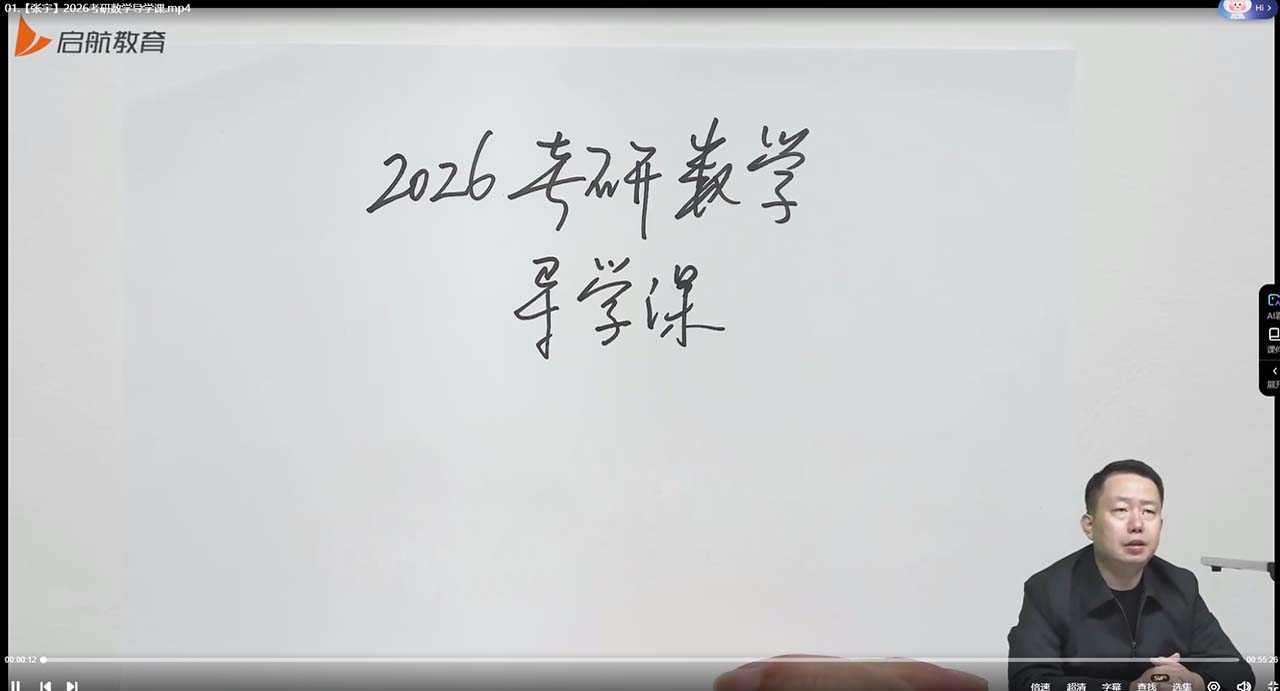 01.【张宇】2026考研数学导学课.mp4
Hi >
启航教育
2026考研数学
导学课
AI
课件
展开
00:00:12
00:55:26
倍速
超清
字幕
SVIP
查找
选集